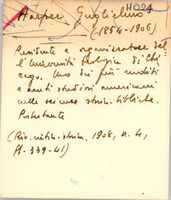 4024
Harper Guglielmo
(1854-1906)
Presidente e organizzatore del
l'Università di Chi
cago. Uno dei più eruditi
e acuti studiosi americani
nelle scienze storico-bibliche.
Protestante
(Riv. , 1908, n. 4,
pp. 339-41)